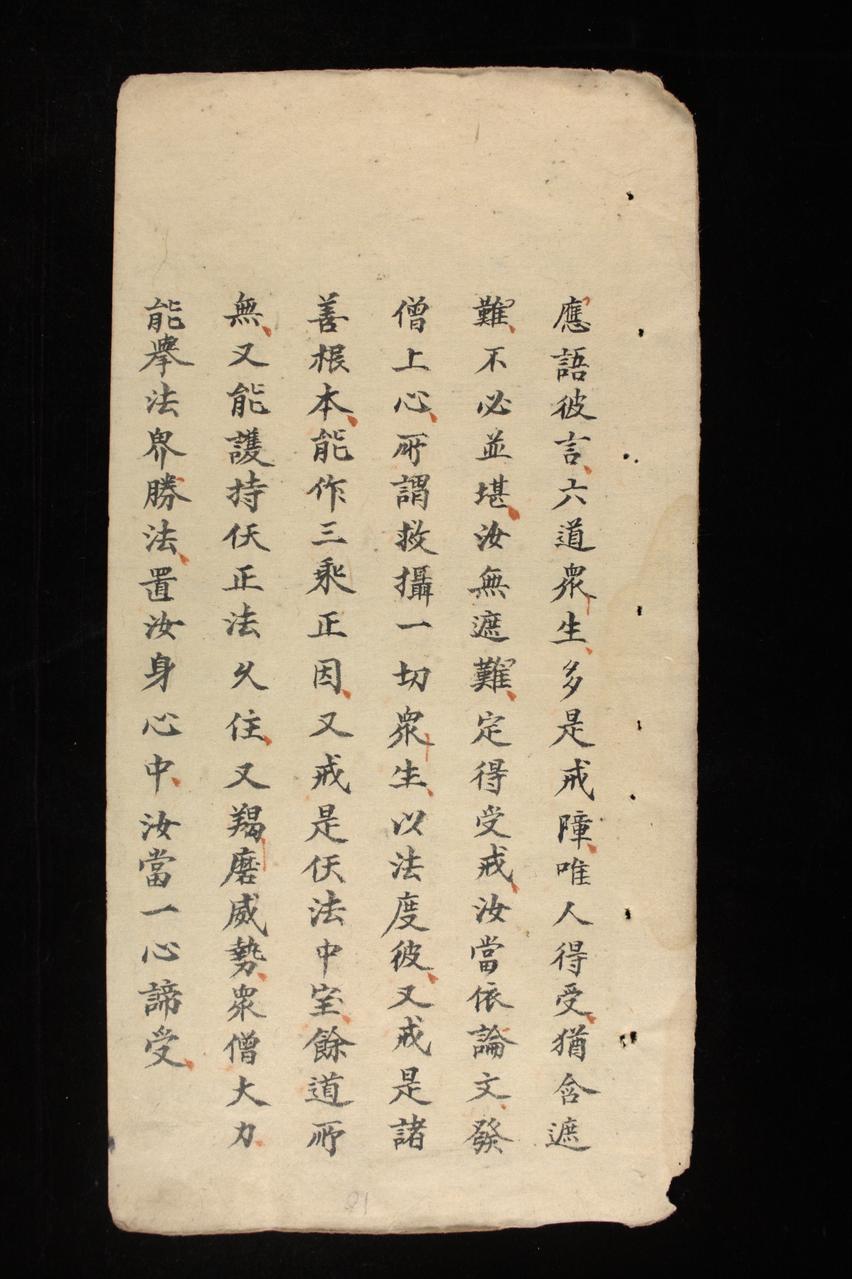 應語彼言六道衆生多是戒障唯人得受猶含遮
難不必並堪汝無遮難定得受戒汝當依論文發
僧上心所謂救攝一切衆生以法度彼又戒是諸
善根本能作三乘正因又戒是仸法中室餘道所
無又能護持仸正法久住又羯磨威勢衆僧大力
能舉法界勝法置汝身心中汝當一心諦受